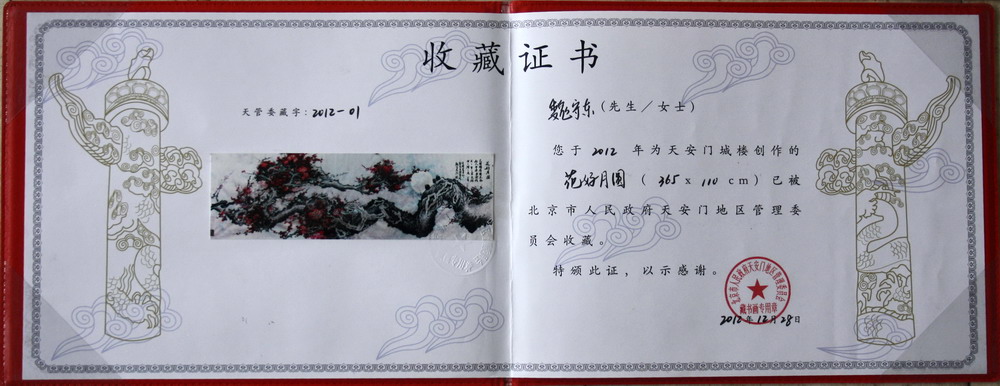 收藏证书
天管委藏字:2012-01
魏守东(先生/女士)
您于 2012 年为天安门城楼创作的
花好月圆 (365 x 110 cm)已被
北京市人民政府天安门地区管理委
员会收藏。
特颁此证,以示感谢。
北京市人民政府天安门地区管理委员会
藏书画专用章
2012年12月28日